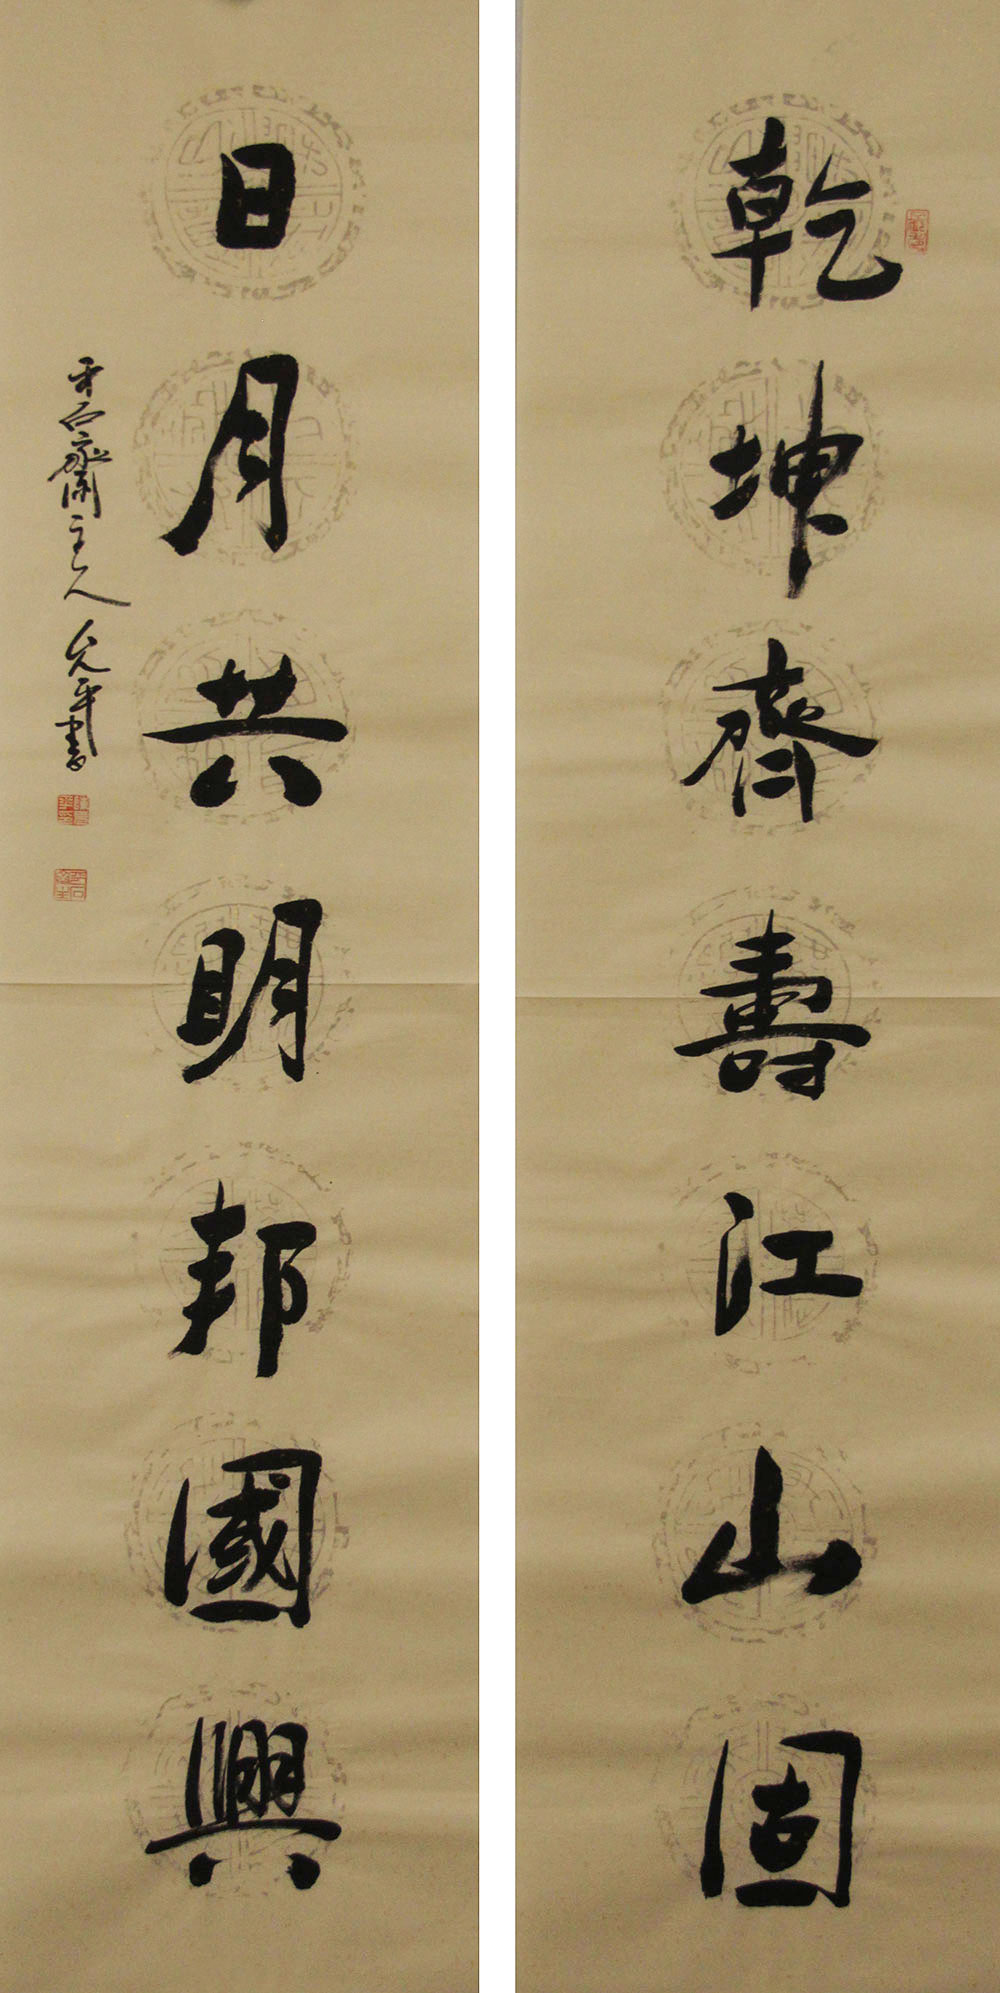 乾坤齊壽江山固
日月共明邦國興
石齋主人允平書